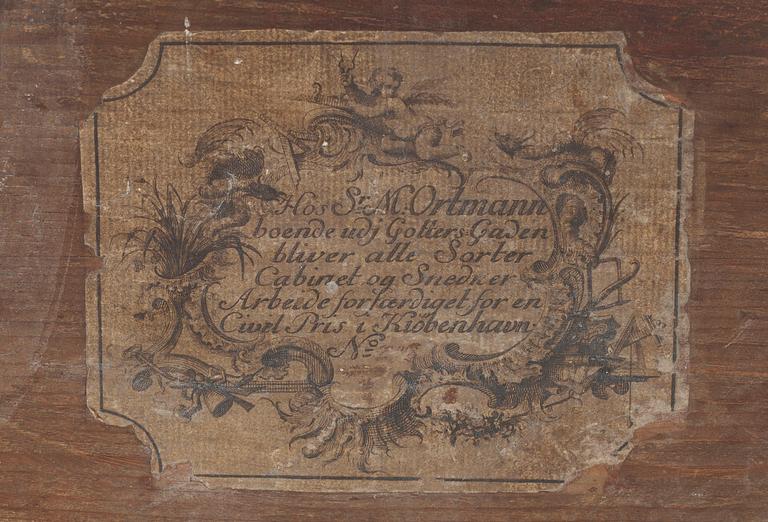 Hos Sr. M. Ortmann
boende udj Gotters Gaden
bliver alle Sorter
Cabinet og Snedker
Arbeide forfærdiget for en
Civil Pris i Kiöbenhavn
No.